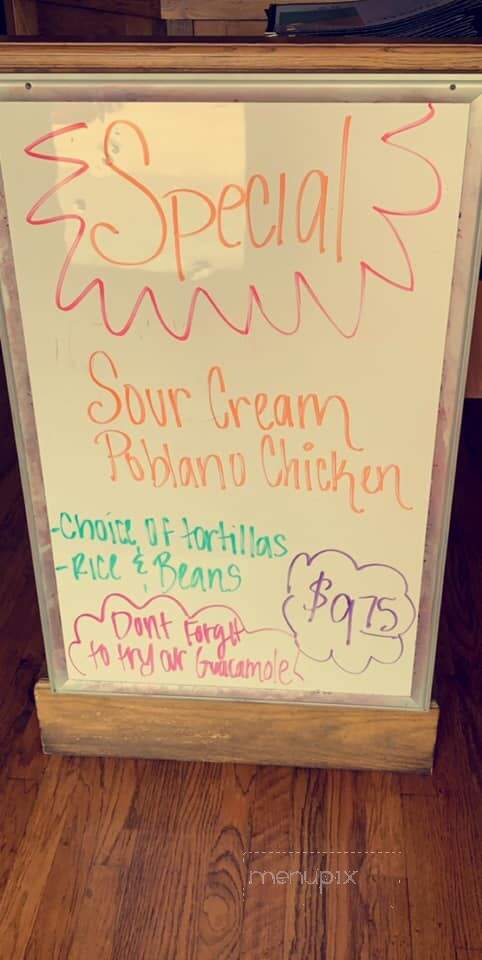 Special
Sour Cream
Poblano Chicken
-Choice of tortillas
-Rice & Beans
$9.75
Dont Forget
to try our Guacamole
menupix